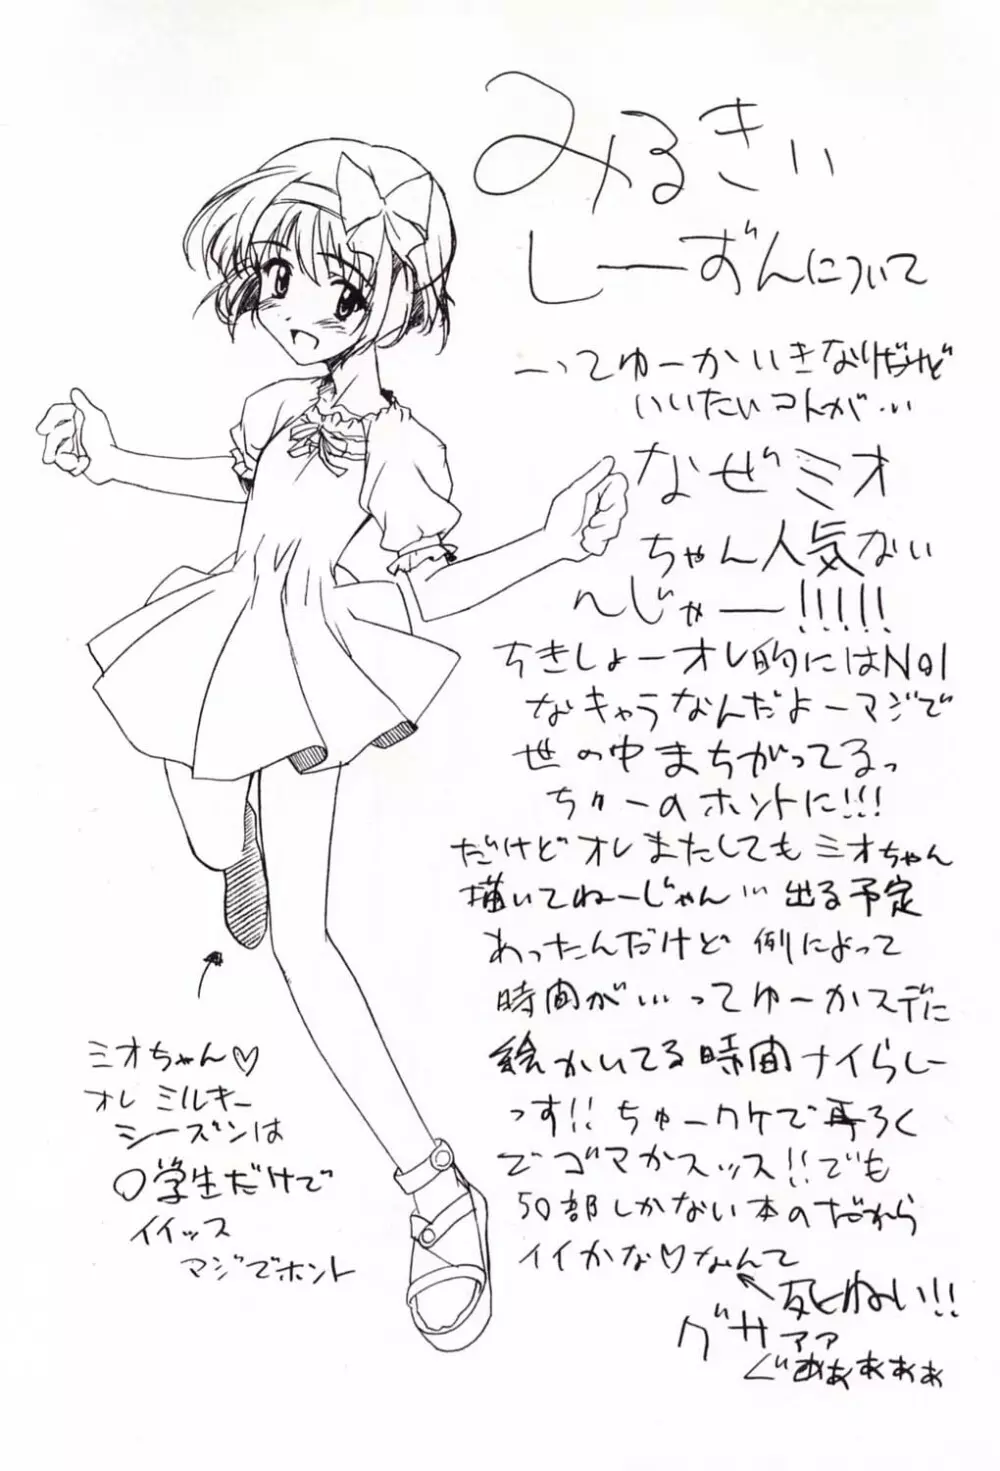 みるきぃ
しーずんについて
―ってゆーかいきなりだけど
いいたいコトが…
なぜミオ
ちゃん人気ない
んじゃー!!!!!
ちきしょーオレ的にはNo1
なキャラなんだよーマジで
世の中まちがってるっ
ちゅーのホントに!!!
だけどオレまたしてもミオちゃん
描いてねーじゃん… 出る予定
あったんだけど 例によって
時間が…ってゆーかスデに
絵かいてる時間ナイらしー
っす!! ちゅーワケで再ろく
でゴマかスッス!!でも
50部しかない本のだから
イイかな♡なんて
←死ねい!!
グサァァ
ぐああああぁ
ミオちゃん♡
オレ ミルキー
シーズンは
○学生だけで
イイッス
マジでホント